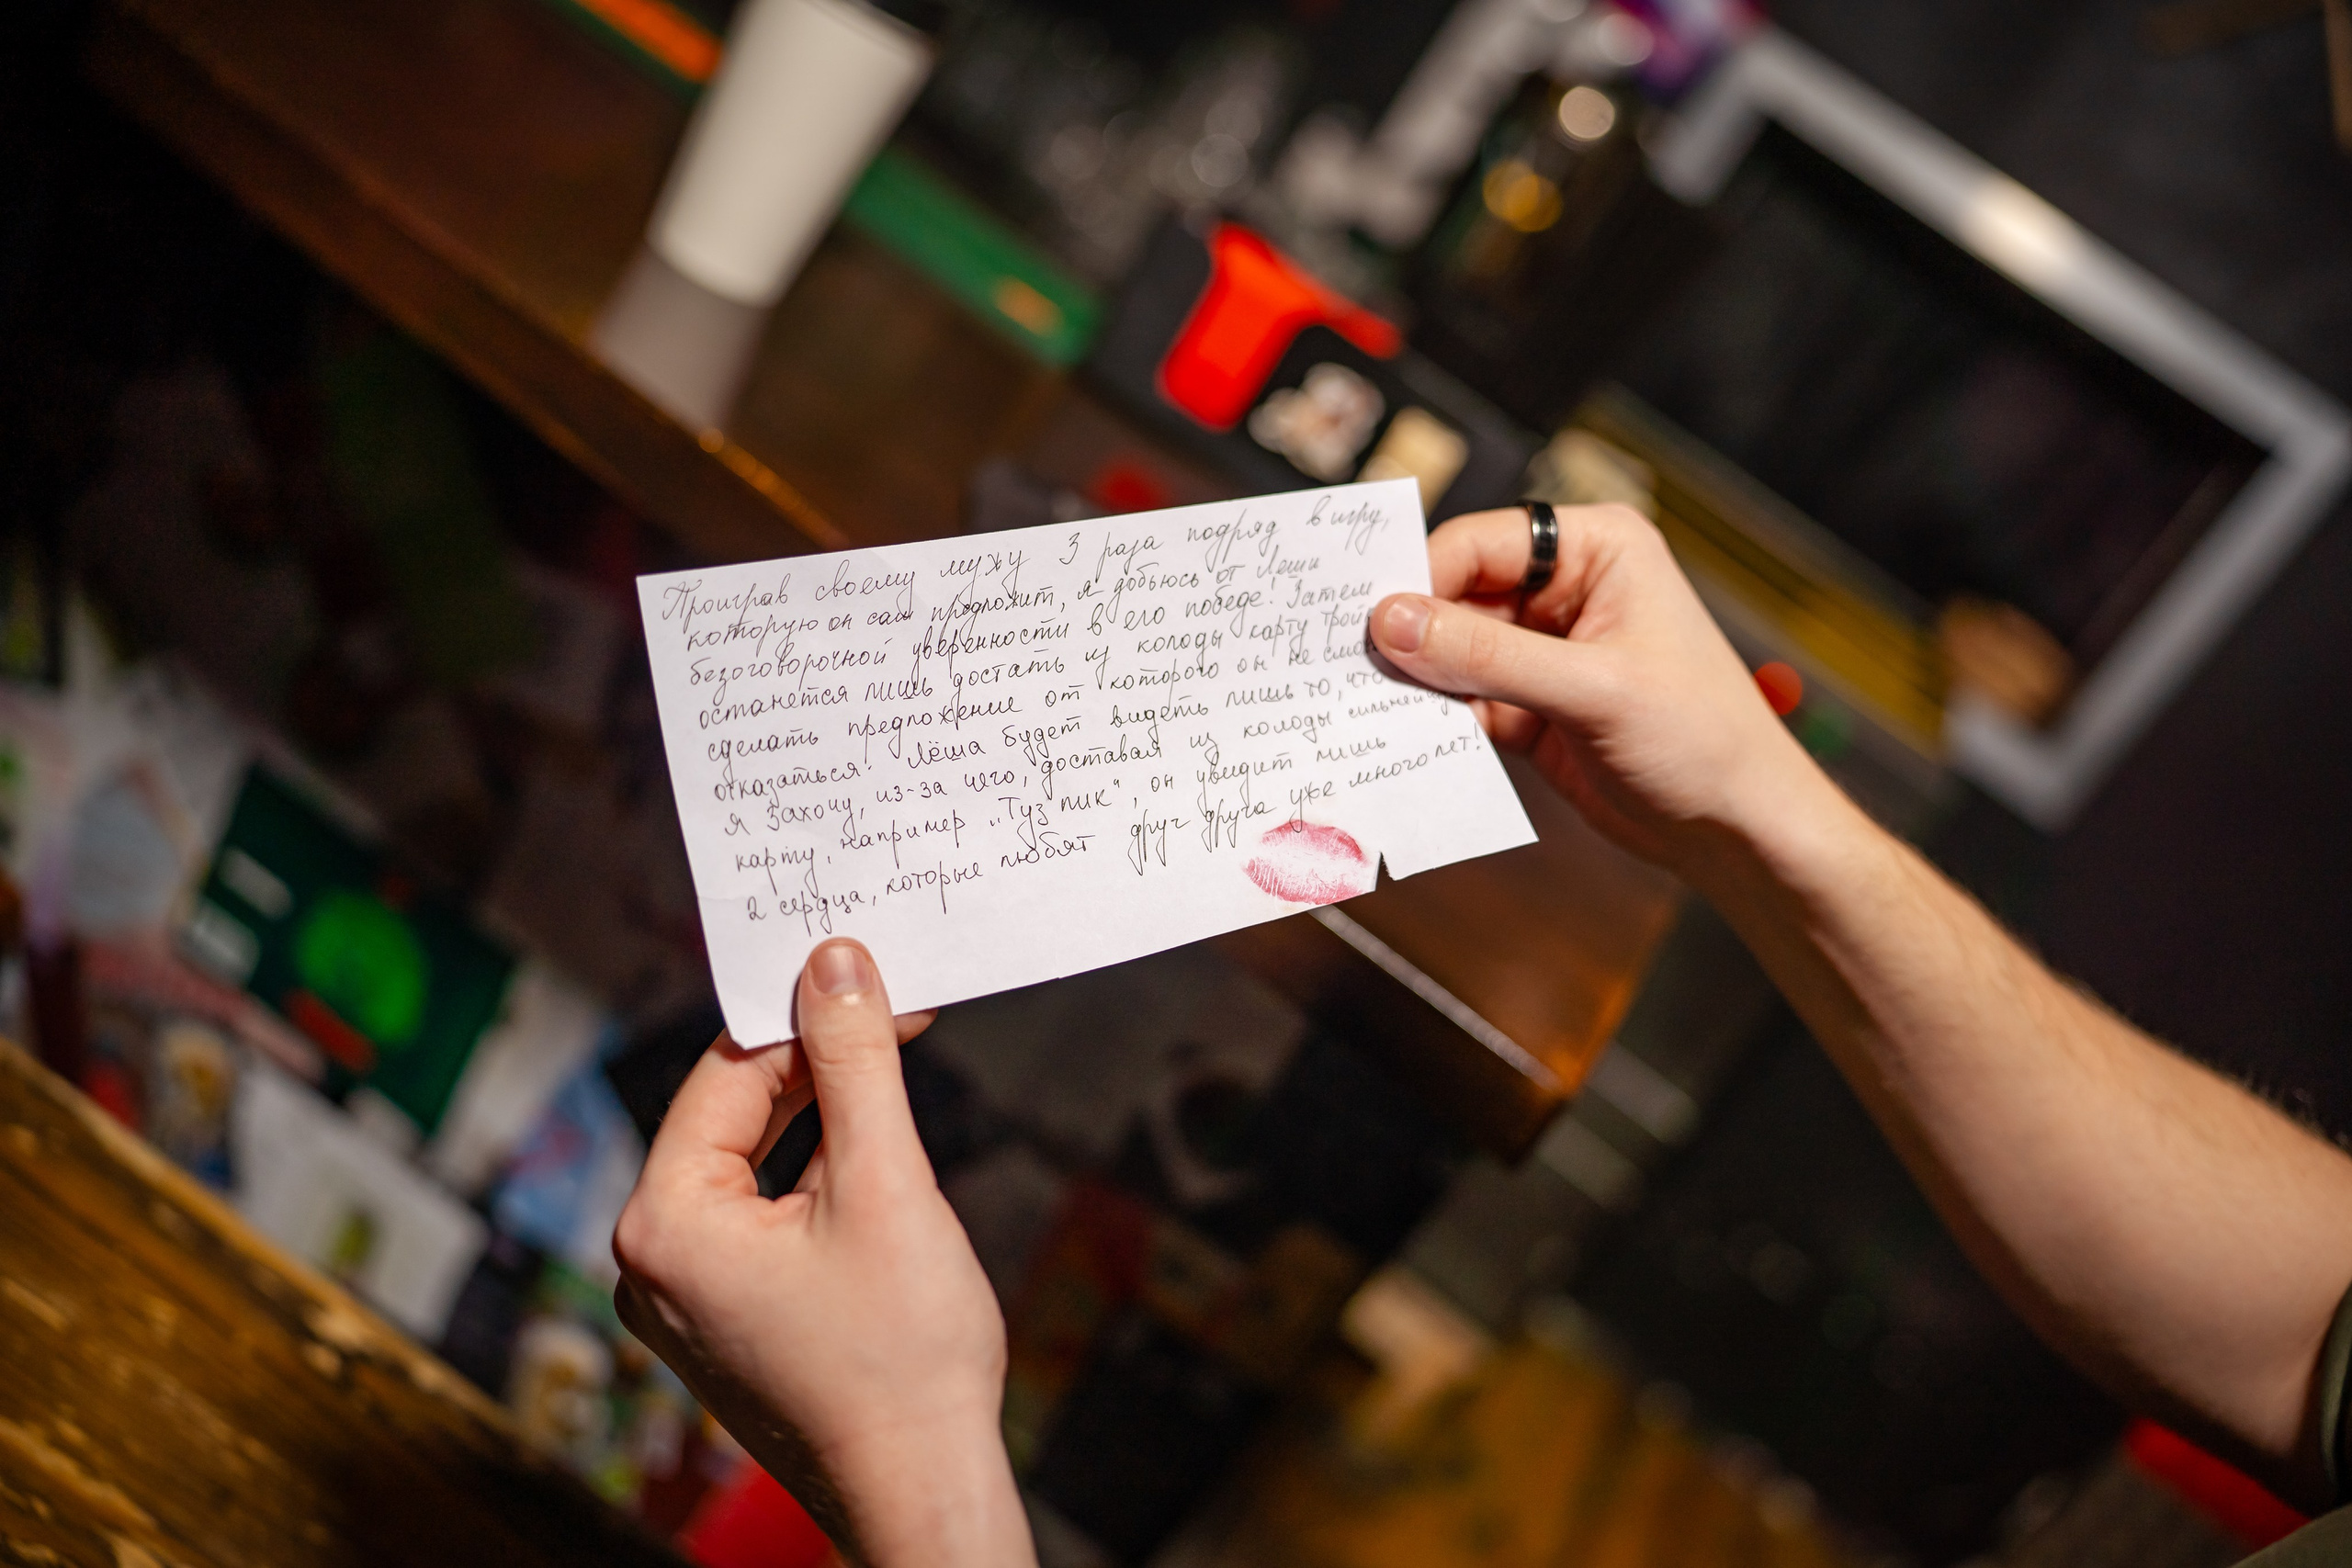 Проиграв своему мужу 3 раза подряд в игру,
которую он сам предложит, я добьюсь от Лёши
безоговорочной уверенности в его победе! Затем
останется лишь достать из колоды карту
сделать предложение от которого он не
отказаться. Лёша будет видеть лишь то, что
я захочу, из-за чего, доставая из колоды сильнейшую
карту, например "Туз пик", он увидит лишь
2 сердца, которые любят друг друга уже много лет!